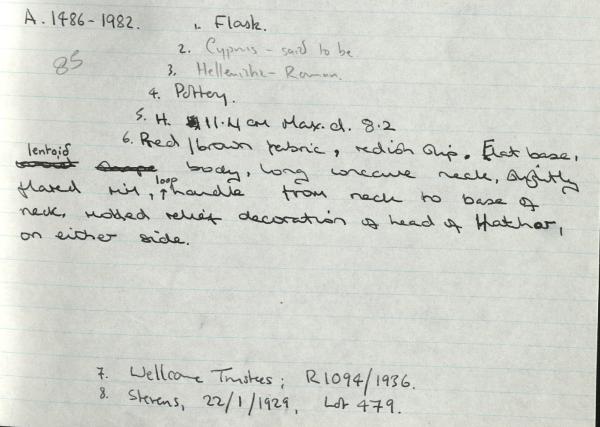 A. 1486-1982. 1. Flask.
85
2. Cyprus - said to be
3. Hellenistic - Roman.
4. Pottery.
5. H. 11.4 cm Max. d. 8.2
6. Red/brown fabric, redish slip. Flat base,
lentoid body, long concave neck, slightly
flared rim, loop handle from neck to base of
neck. Molded relief decoration of head of Hathor,
on either side.
7. Wellcome Trustees; R1094/1936.
8. Stevens, 22/1/1929, Lot 479.